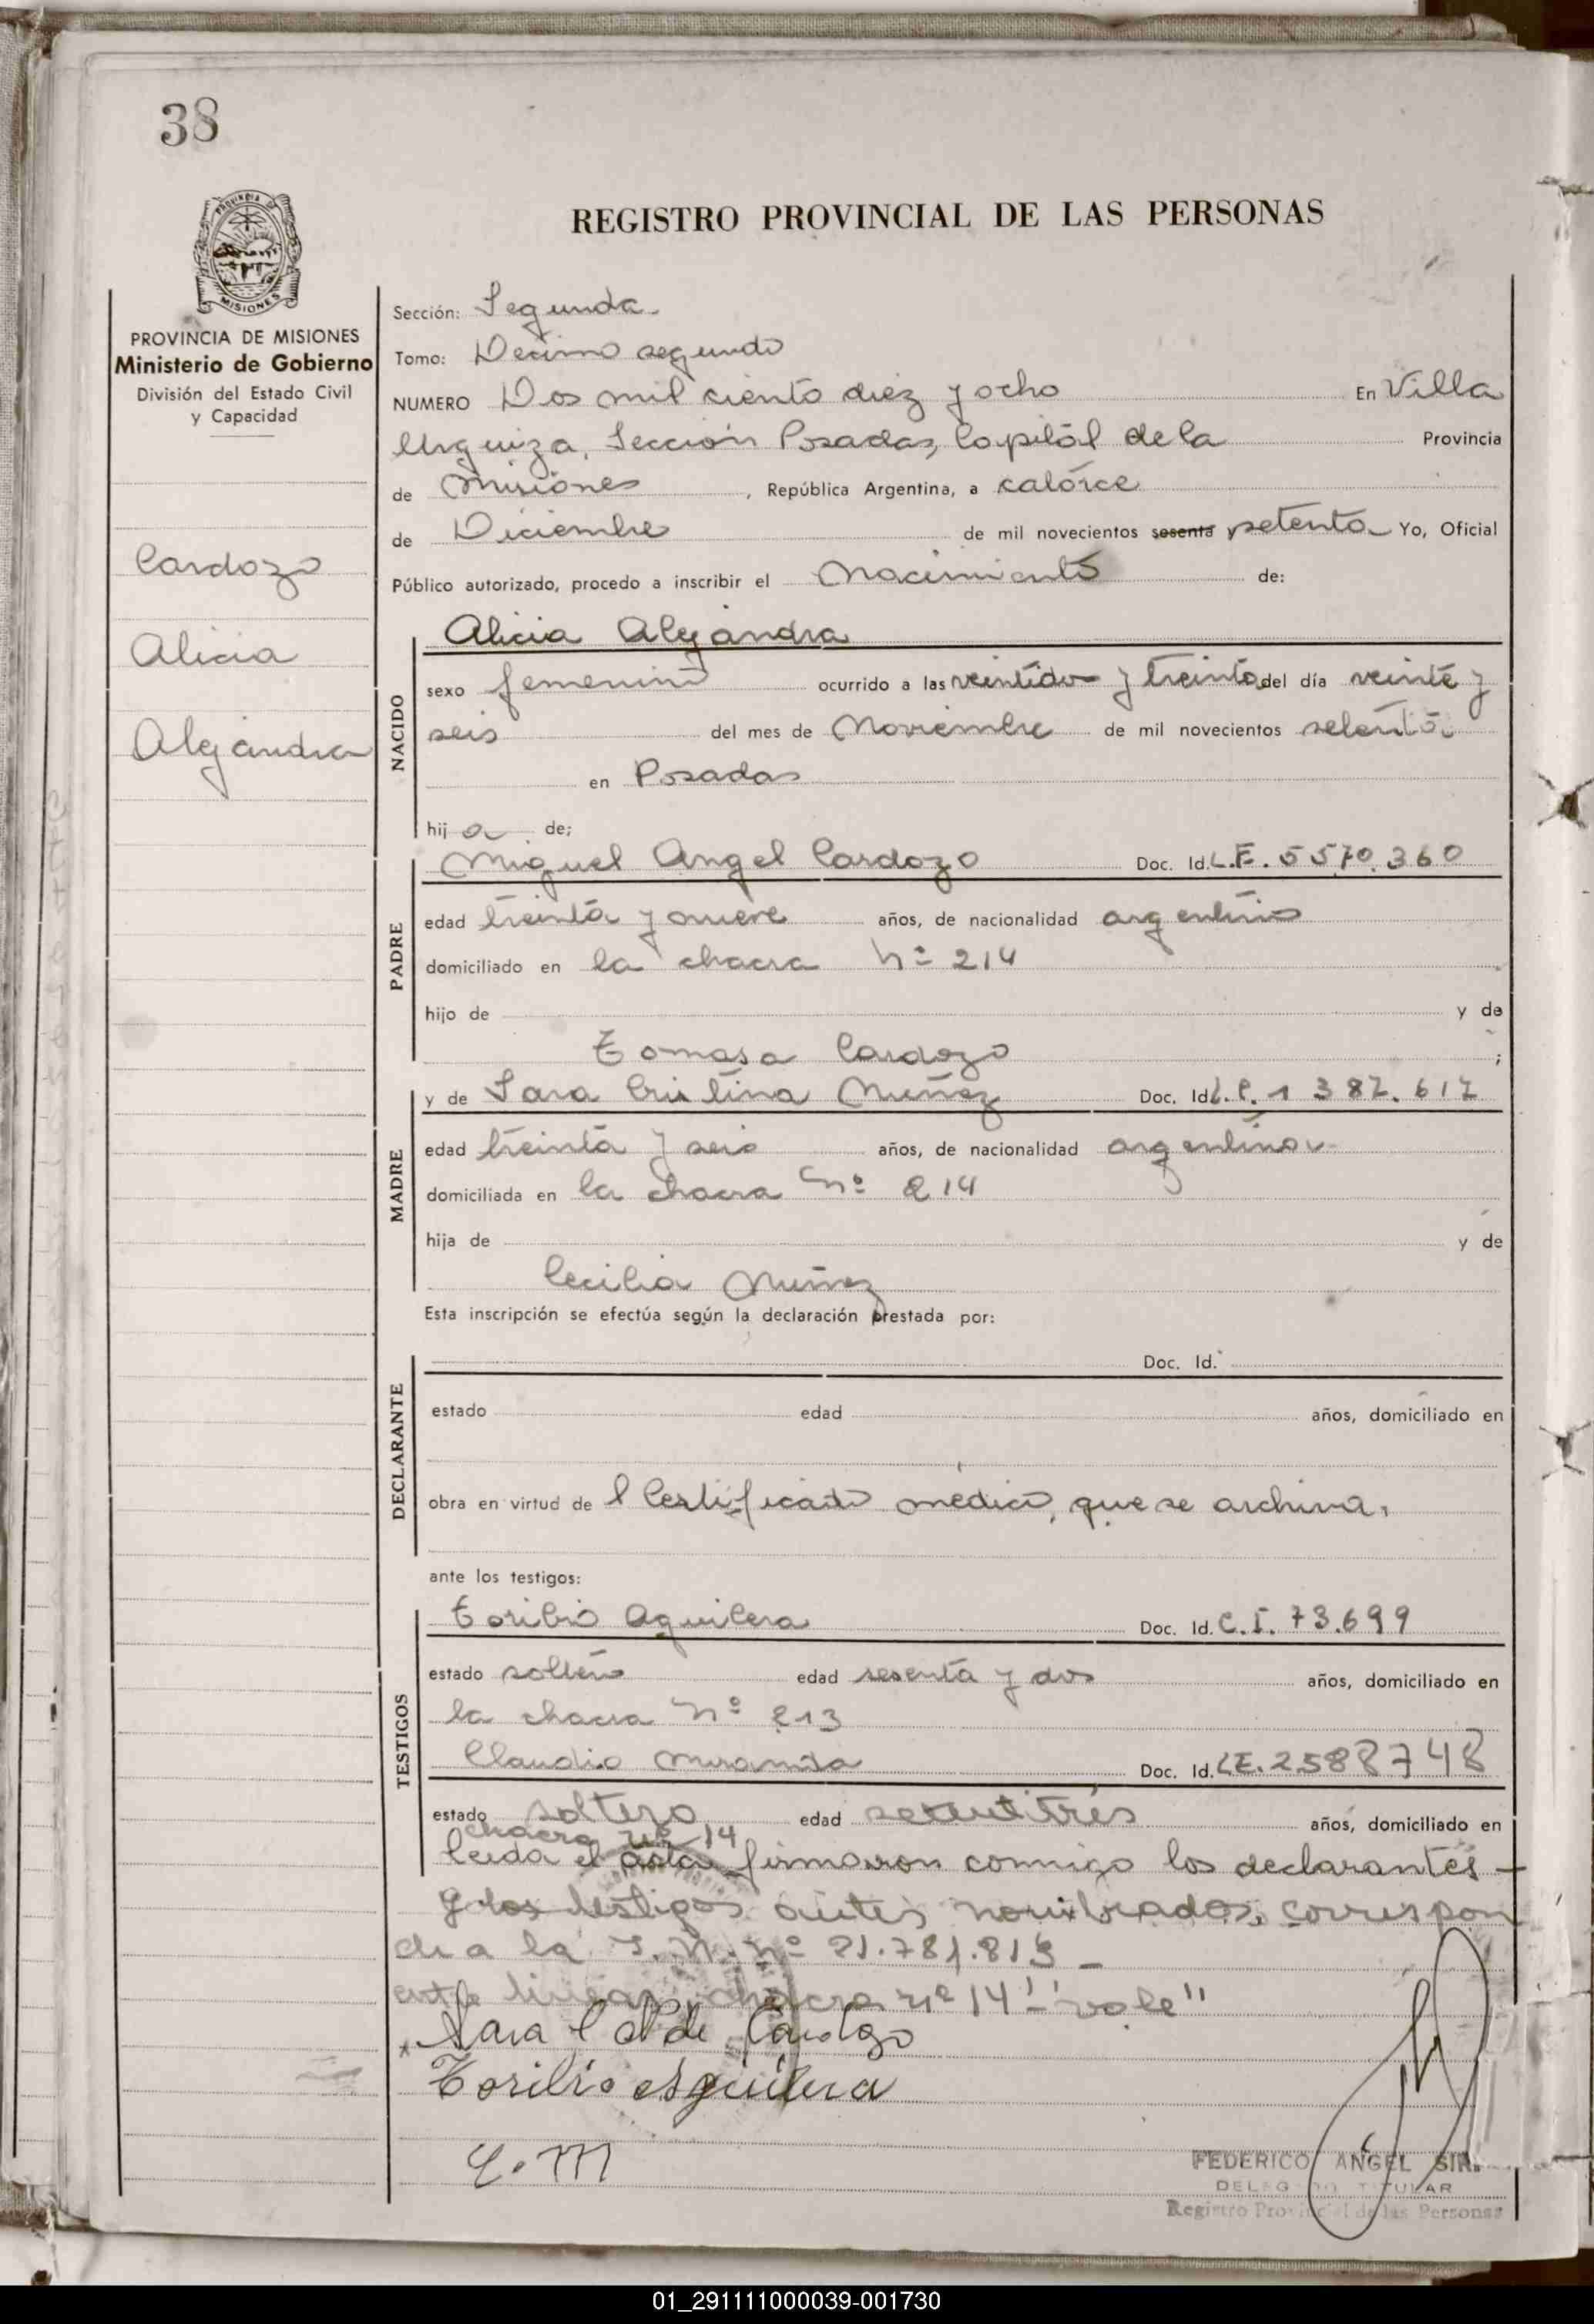 38
PROVINCIA DE
MISIONES
PROVINCIA DE MISIONES
Ministerio de Gobierno
División del Estado Civil
y Capacidad
Cardozo
Alicia
Alejandra
REGISTRO PROVINCIAL DE LAS PERSONAS
Sección: Segunda
Tomo: Decimo segundo
NUMERO Dos mil ciento diez y ocho En Villa
Urquiza, Sección Posadas, Capital de la Provincia
de Misiones, República Argentina, a catorce
de Diciembre de mil novecientos sesenta y setenta Yo, Oficial
Público autorizado, procedo a inscribir el Nacimiento de:
Alicia Alejandra
NACIDO
sexo femenino ocurrido a las veintidos y treinta del día veinte y
seis del mes de Noviembre de mil novecientos setenta
en Posadas
hij a de;
PADRE
Miguel Angel Cardozo Doc. Id. L.E. 5570.360
edad treinta y nueve años, de nacionalidad argentino
domiciliado en la chacra Nº 214
hijo de y de
Tomasa Cardozo ;
MADRE
y de Sara Cristina Muñez Doc. Id L.C. 1 382.612
edad treinta y seis años, de nacionalidad argentina
domiciliada en la chacra Nº 214
hija de y de
Cecilia Muñez
Esta inscripción se efectúa según la declaración prestada por:
DECLARANTE
Doc. Id.
estado edad años, domiciliado en
obra en virtud de l Certificado médico, que se archiva.
ante los testigos:
TESTIGOS
Toribio Aguilera Doc. Id. C.I. 73.699
estado soltero edad sesenta y dos años, domiciliado en
la chacra Nº 213
Claudio Miranda Doc. Id. LE. 2588748
estado soltero edad setentitres años, domiciliado en
chacra nº 14
leida el acta firmaron conmigo los declarantes -
y los testigos antes nombrados, correspon
de a la nº 21.781.813 -
entre lineas chacra nº 14 - "vale"
Sara C de Cardozo
Toribio Aguilera
C. M
FEDERICO ANGEL
DELEGADO TITULAR
Registro Provincial de las Personas
01_291111000039-001730